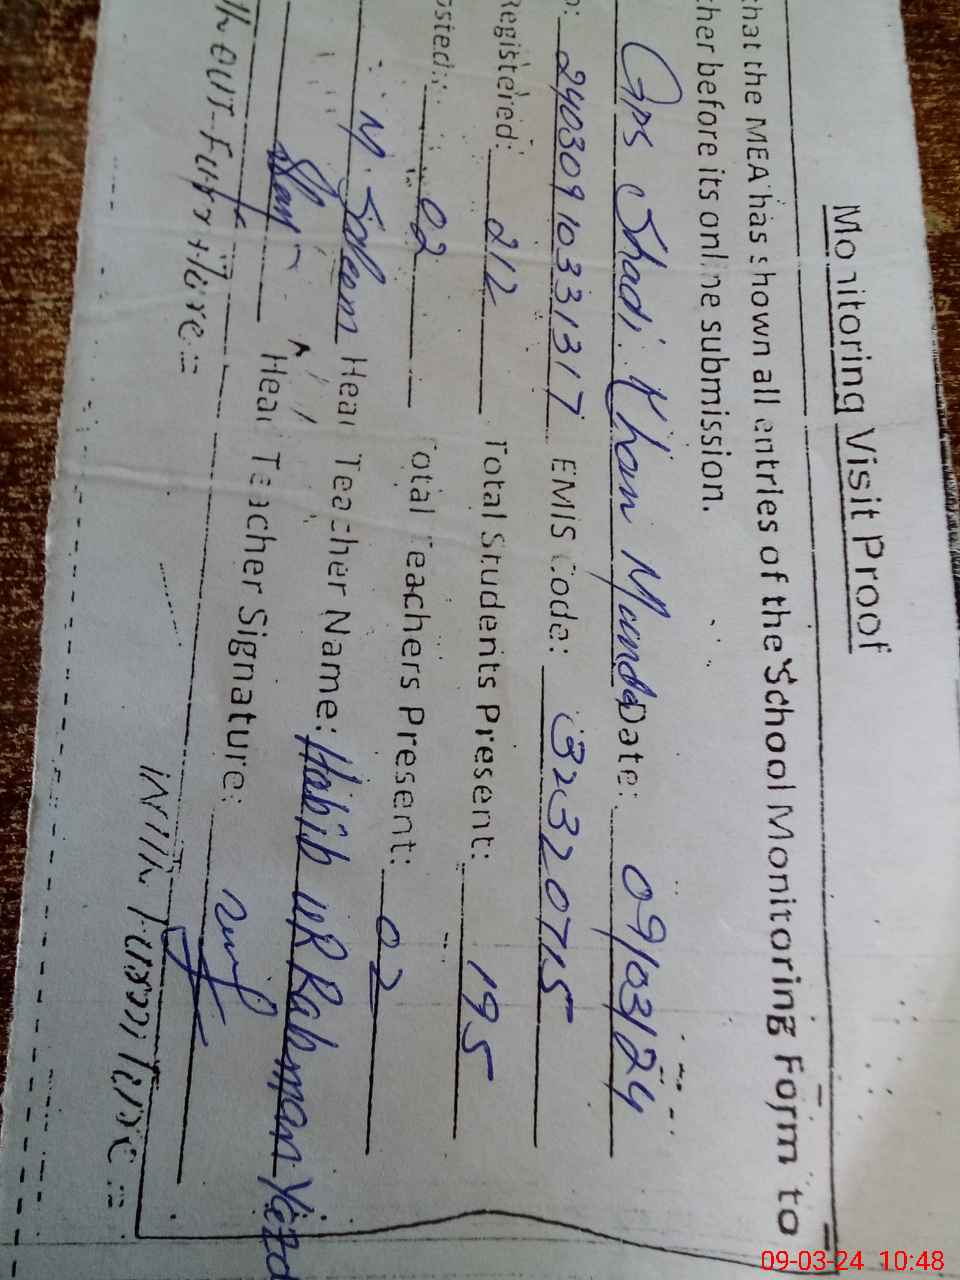 Monitoring Visit Proof
that the MEA has shown all entries of the School Monitoring Form to
ther before its online submission.
GPS Shadi Khan Manda Date: 09/03/24
o: 24030910331317 EMIS Code: 32320715
Registered: 212 Total Students Present: 195
osted: 02 Total Teachers Present: 02
M. Saleem Head Teacher Name: Habib UR Rahman
Head Teacher Signature:
With Furniture =
09-03-24 10:48